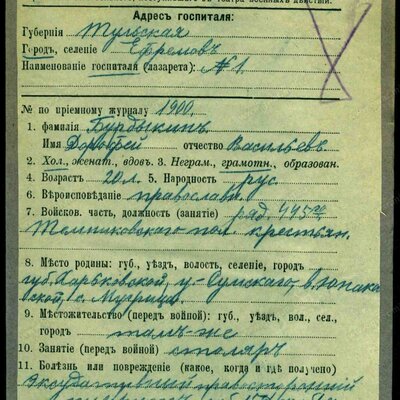 Адресъ госпиталя:
Губернія Тульская
Городъ, селеніе Ефремовъ
Наименованіе госпиталя (лазарета): №1.
№ по пріемному журналу 1900.
1. фамилія Бурдыкинъ
Имя отчество Васильевъ
2. Хол., женат., вдовъ. 3. Неграм., грамотн., образован.
4. Возрастъ 20 л. 5. Народность рус
6. Вѣроисповѣданіе православн.
7. Войсков. часть, должность (занятіе) ряд. 445го
Темниковскаго пол. крестьян.
8. Мѣсто родины: губ., уѣздъ, волость, селеніе, городъ
губ. Харьковской, у. Сумскаго в. Юнака
ской, с.
9. Мѣстожительство (передъ войной): губ., уѣздъ, вол., сел.,
городъ тамъ-же
10. Занятіе (передъ войной) столяръ
11. Болѣзнь или поврежденіе (какое, когда и гдѣ получено)
Эксудативный правосторонній